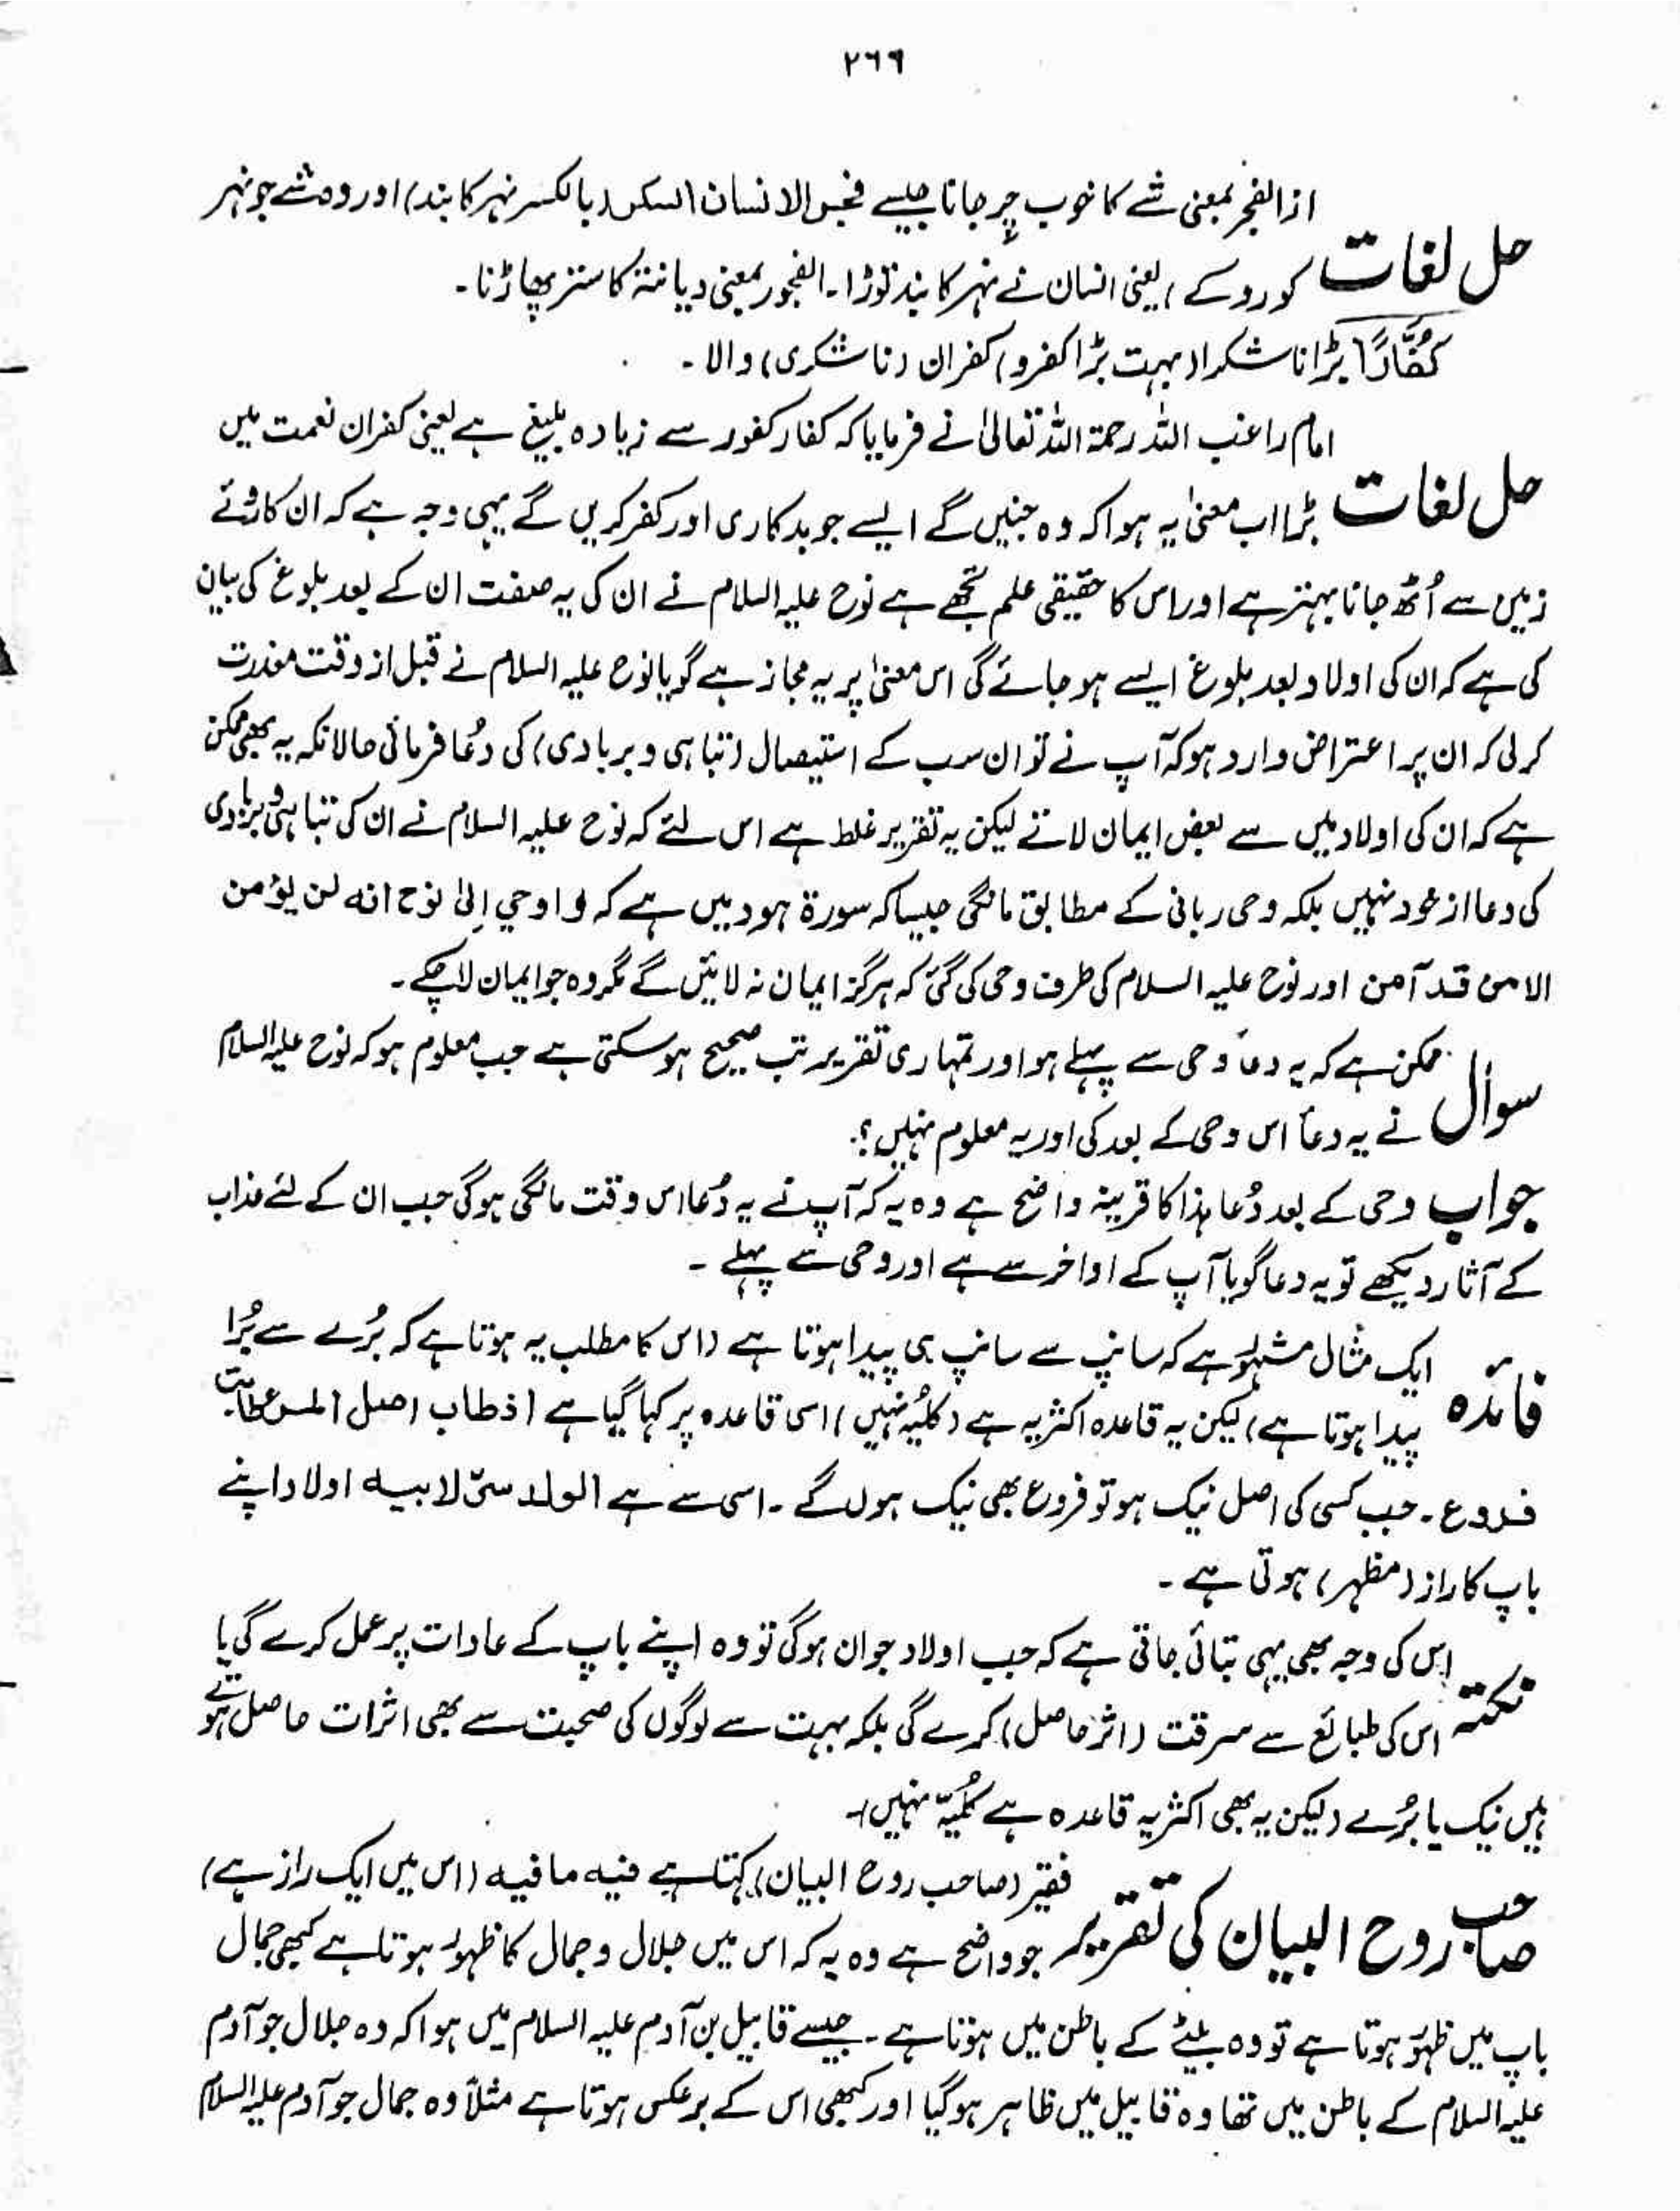 ۲۶۹
از الفجر بمعنی شے کا خوب چر جانا جیسے فجر الانسان السکر (بالکسر نہر کا بند) اور وہ شے جو نہر
حل لغات کو روکے، یعنی انسان نے نہر کا بند توڑا۔ الفجور بمعنی دیانۃ کا ستر پھاڑنا۔
کَفَّارًا بڑا ناشکرا (بہت بڑا کفر و) کفران (ناشکری) والا۔
امام راغب اللہ رحمۃ اللہ تعالیٰ نے فرمایا کہ کفار کفور سے زیادہ بلیغ ہے یعنی کفران نعمت میں
حل لغات بڑا اب معنیٰ یہ ہوا کہ وہ جنیں گے ایسے جو بدکاری اور کفر کریں گے یہی وجہ ہے کہ ان کا روئے
زمیں سے اُٹھ جانا بہتر ہے اور اس کا حقیقی علم تجھے ہے نوح علیہ السلام نے ان کی یہ صفت ان کے بعد بلوغ کی بیان
کی ہے کہ ان کی اولاد بعد بلوغ ایسے ہو جائے گی اس معنیٰ پر یہ مجاز ہے گویا نوح علیہ السلام نے قبل از وقت معذرت
کرلی کہ ان پر اعتراض وارد ہو کہ آپ نے تو ان سب کے استیصال (تباہی و بربادی) کی دُعا فرمائی حالانکہ یہ بھی ممکن
ہے کہ ان کی اولاد میں سے بعض ایمان لاتے لیکن یہ تقریر غلط ہے اس لئے کہ نوح علیہ السلام نے ان کی تباہی و بربادی
کی دعا از خود نہیں بلکہ وحی ربانی کے مطابق مانگی جیسا کہ سورۃ ہود میں ہے کہ و اوحي اِلیٰ نوح انه لن یؤمن
الا من قد آمن اور نوح علیہ السلام کی طرف وحی کی گئی کہ ہرگز ایمان نہ لائیں گے مگر وہ جو ایمان لا چکے۔
ممکن ہے کہ یہ دعاً وحی سے پہلے ہو اور تمہاری تقریر تب صحیح ہو سکتی ہے جب معلوم ہو کہ نوح علیہ السلام
سوال نے یہ دعاً اس وحی کے بعد کی اور یہ معلوم نہیں؟
جواب وحی کے بعد دُعا ہذا کا قرینہ واضح ہے وہ یہ کہ آپ نے یہ دُعا اس وقت مانگی ہوگی جب ان کے لئے عذاب
کے آثار دیکھے تو یہ دعا گویا آپ کے اواخر سے ہے اور وحی سے پہلے۔
ایک مثال مشہور ہے کہ سانپ سے سانپ ہی پیدا ہوتا ہے (اس کا مطلب یہ ہوتا ہے کہ بُرے سے بُرا
فائدہ پیدا ہوتا ہے) لیکن یہ قاعدہ اکثریہ ہے (کلیہ نہیں) اسی قاعدہ پر کہا گیا ہے اذ طاب اصل المرء طابت
فروع۔ جب کسی کی اصل نیک ہو تو فروع بھی نیک ہوں گے۔ اسی سے ہے الولد سرّ لابیه اولاد اپنے
باپ کا راز (مظہر) ہوتی ہے۔
اس کی وجہ بھی یہی بتائی جاتی ہے کہ جب اولاد جوان ہوگی تو وہ اپنے باپ کے عادات پر عمل کرے گی یا
نکتہ اس کی طبائع سے سرقت (اثر حاصل) کرے گی بلکہ بہت سے لوگوں کی صحبت سے بھی اثرات حاصل ہوتے
ہیں نیک یا بُرے (لیکن یہ بھی اکثریہ قاعدہ ہے کلیہ نہیں)۔
فقیر (صاحب روح البیان) کہتا ہے فیه ما فیه (اس میں ایک راز ہے)
صاحب روح البیان کی تقریر جو واضح ہے وہ یہ کہ اس میں جلال و جمال کا ظہور ہوتا ہے کبھی جمال
باپ میں ظہور ہوتا ہے تو وہ بیٹے کے باطن میں ہوتا ہے۔ جیسے قابیل بن آدم علیہ السلام میں ہوا کہ وہ جلال جو آدم
علیہ السلام کے باطن میں تھا وہ قابیل میں ظاہر ہوگیا اور کبھی اس کے برعکس ہوتا ہے مثلاً وہ جمال جو آدم علیہ السلام